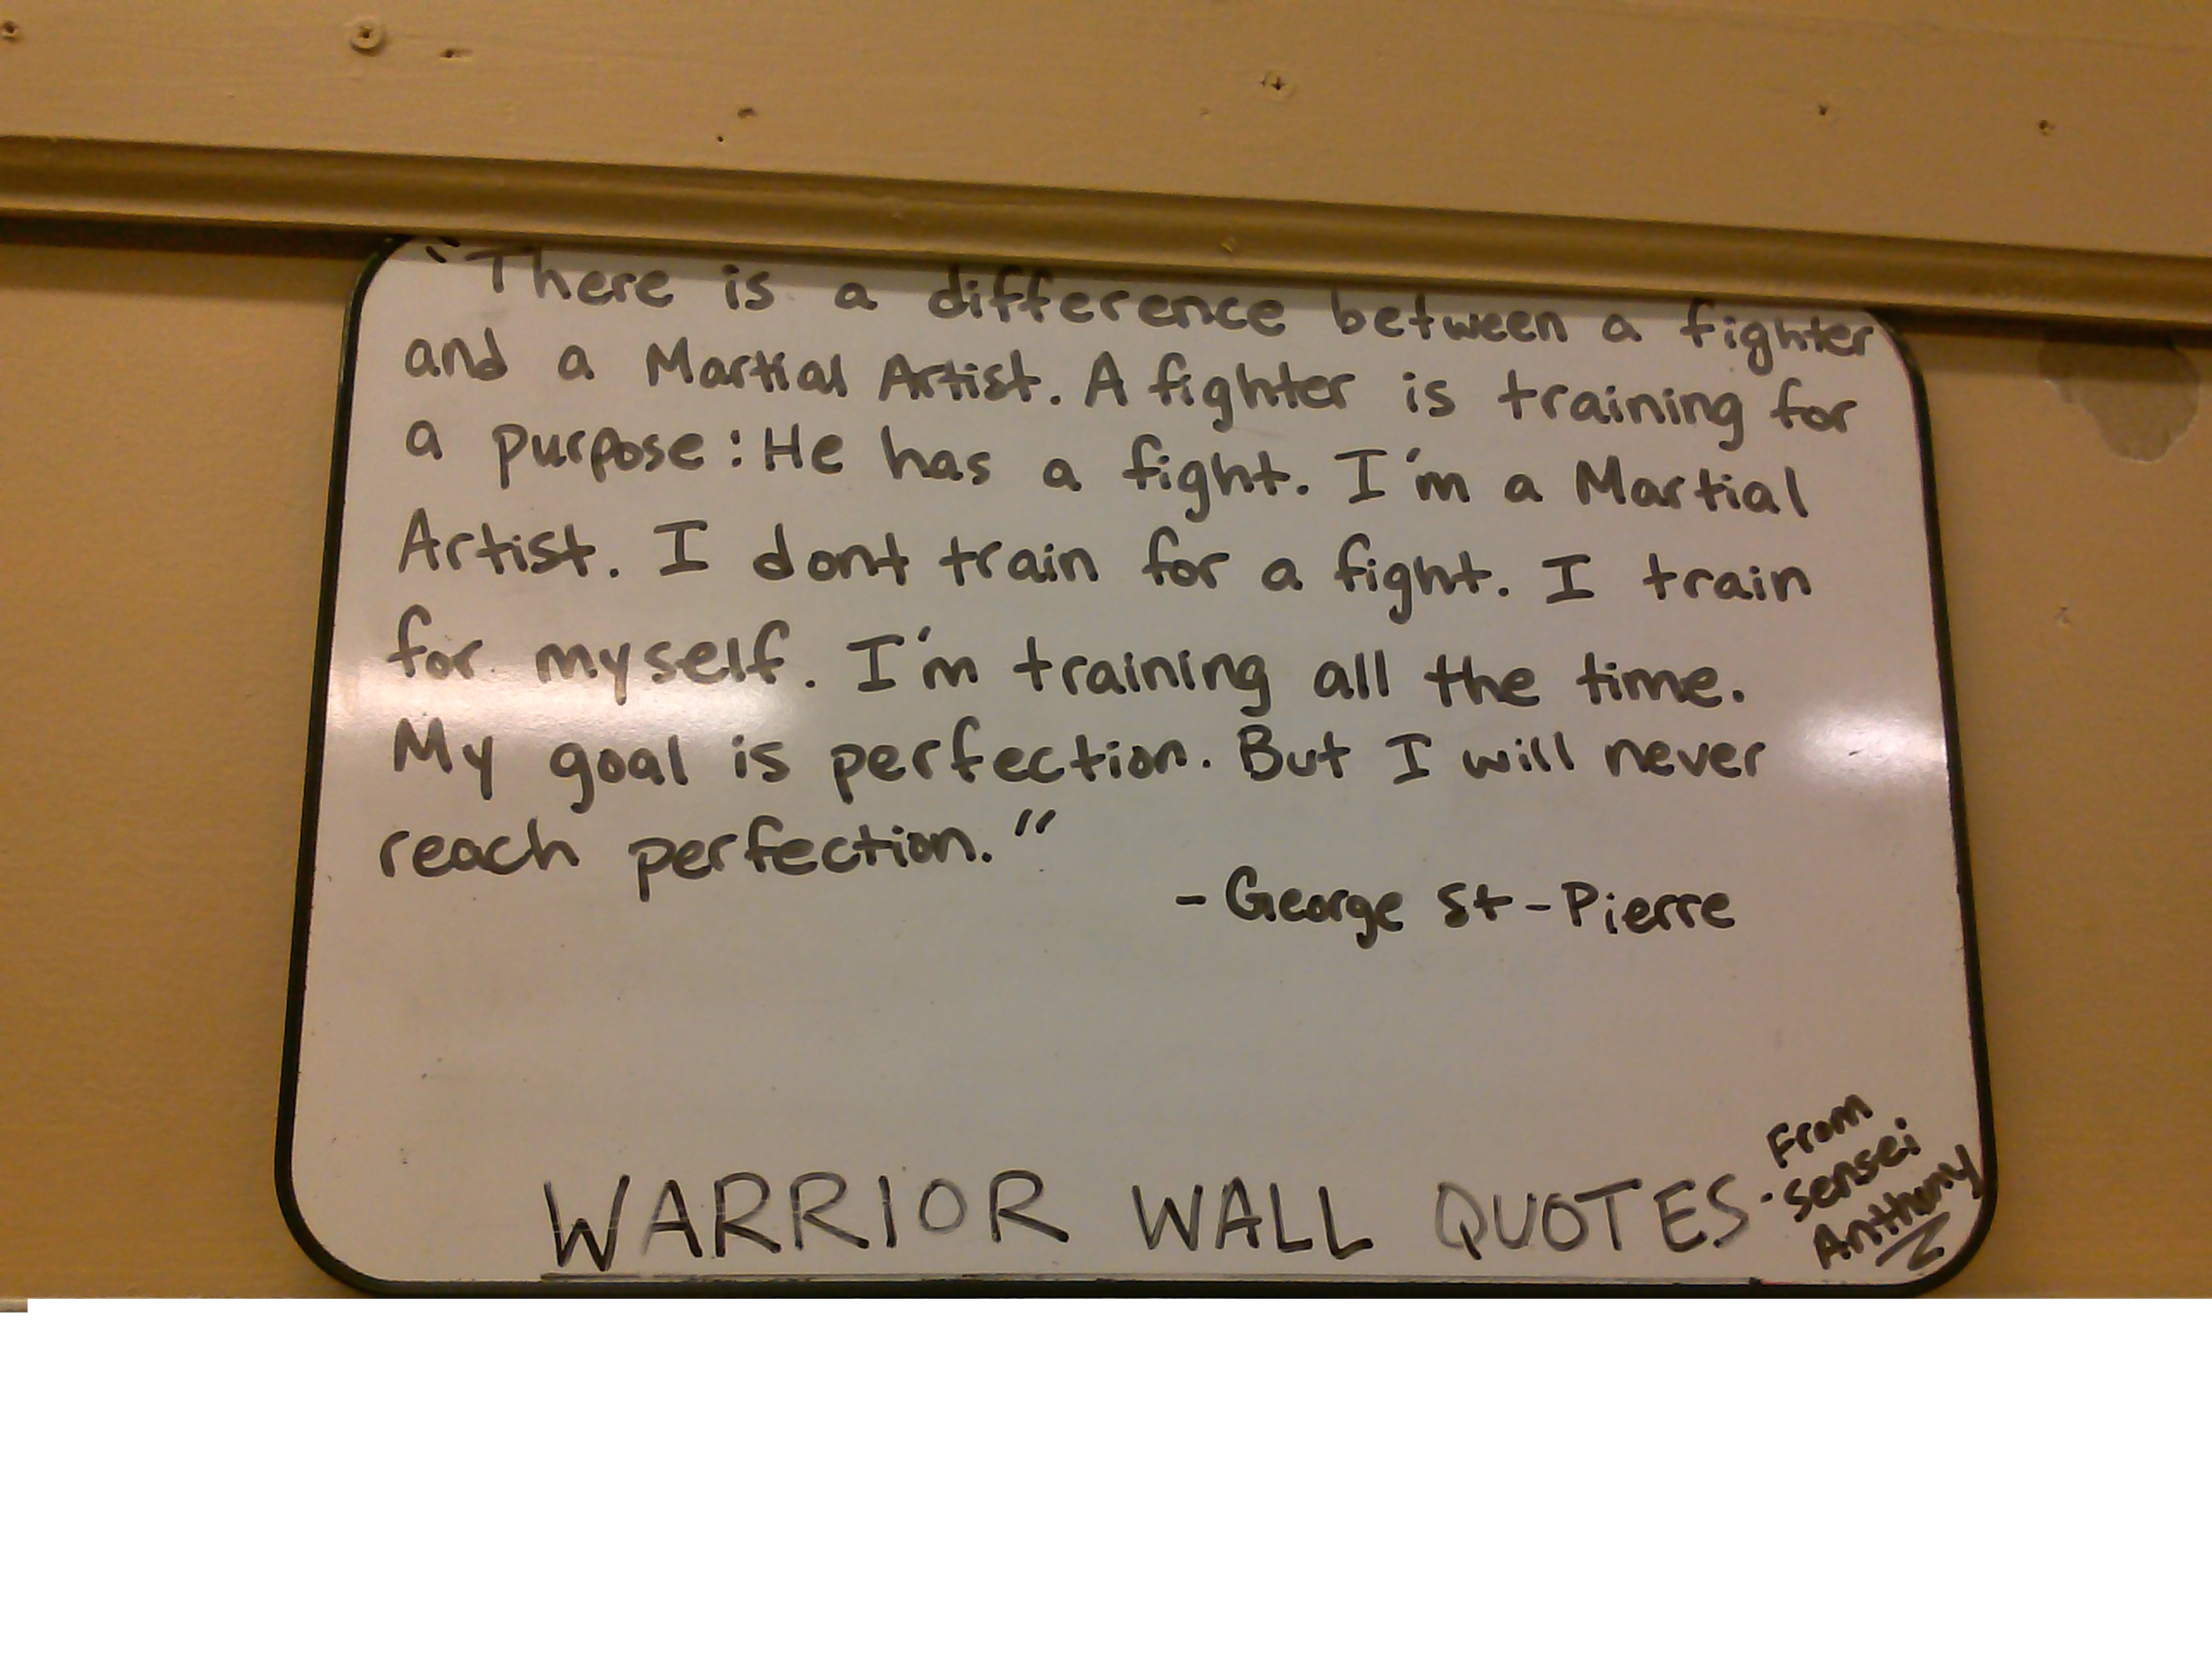 "There is a difference between a fighter
and a Martial Artist. A fighter is training for
a purpose: He has a fight. I'm a Martial
Artist. I dont train for a fight. I train
for myself. I'm training all the time.
My goal is perfection. But I will never
reach perfection."
- George St-Pierre
WARRIOR WALL QUOTES
- From
Sensei
Anthony